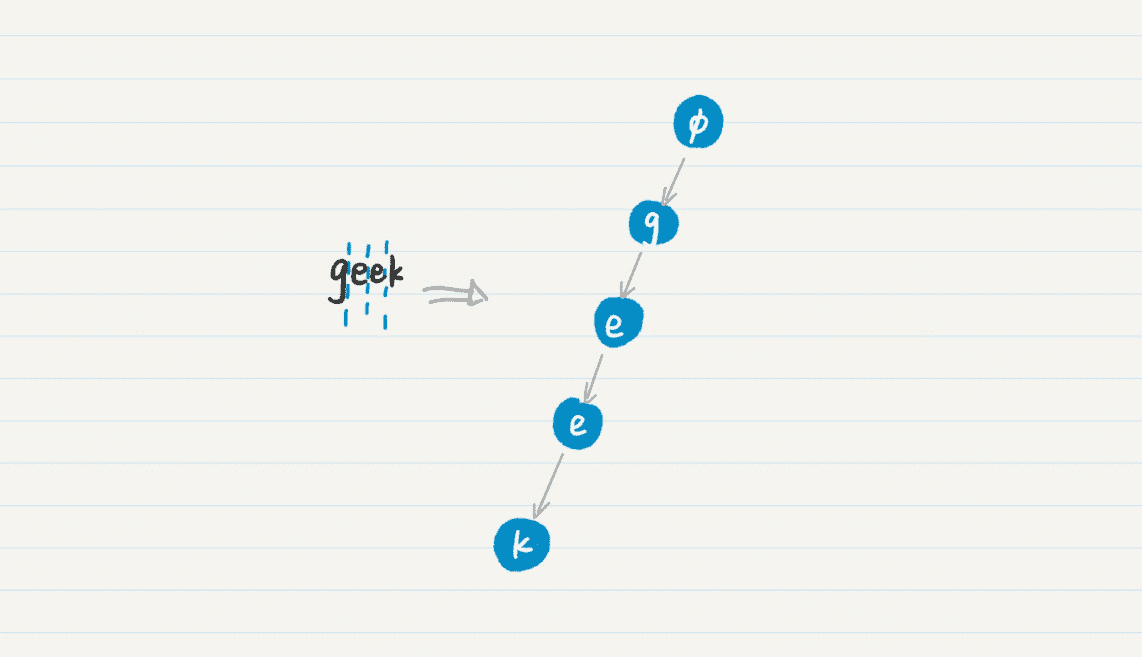 geek
φ
g
e
e
k